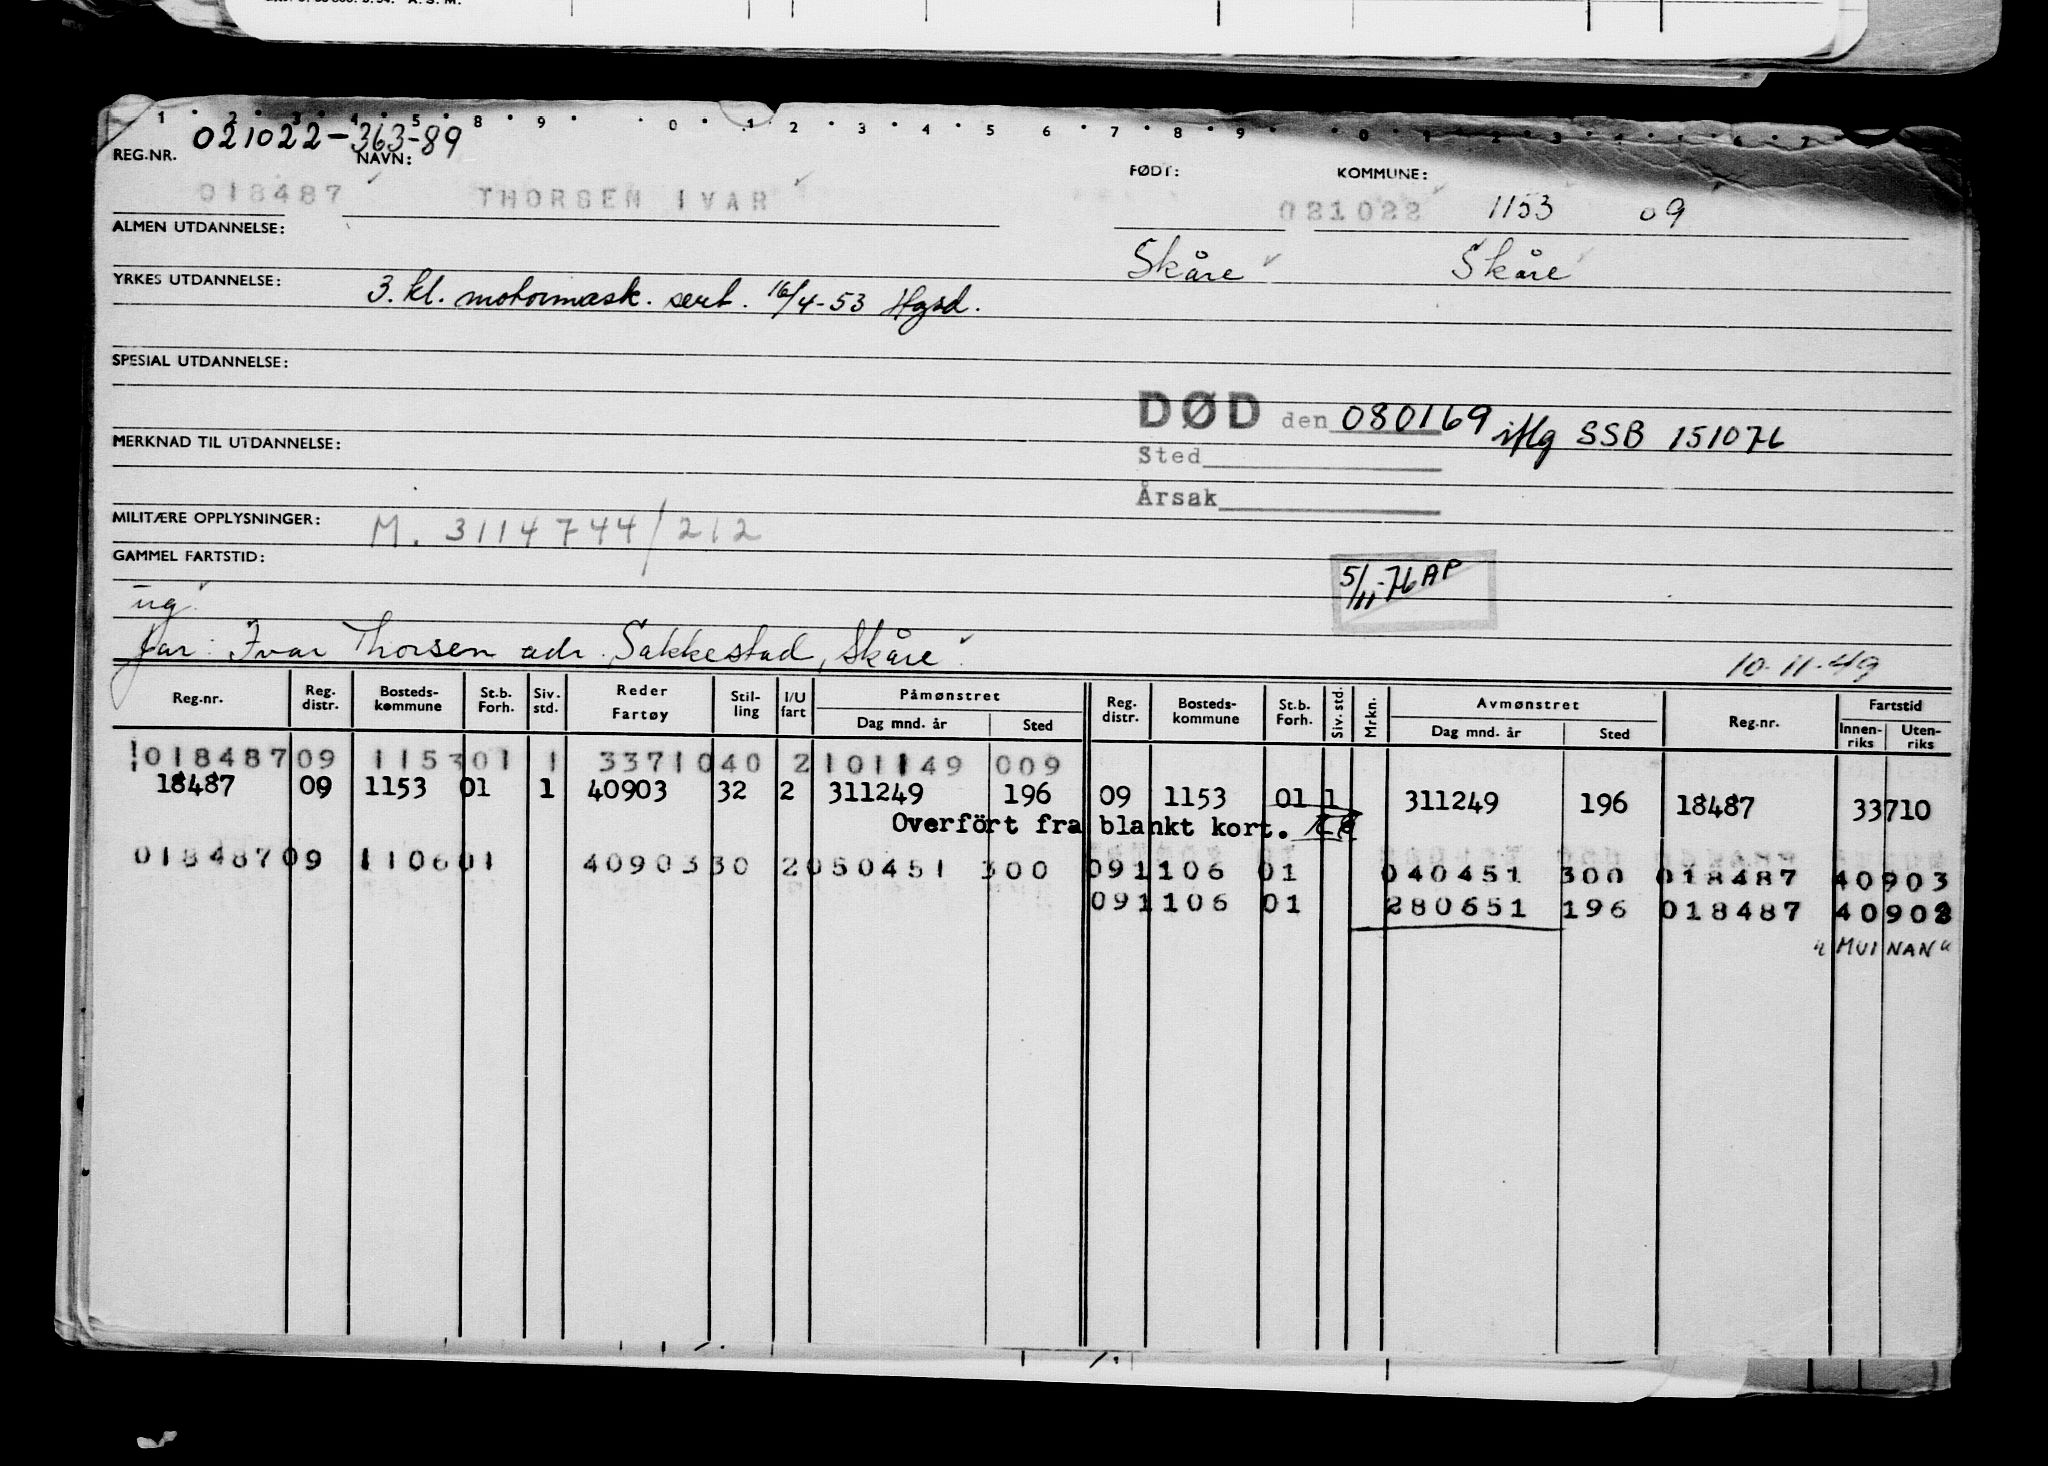 1 2 3 4 5 8 9 0 1 2 3 4 5 6 7 8 9 0 1 2 3 4 5 6 7
021022-363-89
REG.NR. NAVN: FØDT: KOMMUNE:
018487 THORSEN IVAR 021022 1153 09
ALMEN UTDANNELSE:
Skåre Skåre
YRKES UTDANNELSE: 3. kl. motormask. sert. 16/4-53 Hgsd.
SPESIAL UTDANNELSE:
DØD den 080169 iflg SSB 151076
MERKNAD TIL UTDANNELSE:
Sted
Årsak
MILITÆRE OPPLYSNINGER: M. 3114744/212
GAMMEL FARTSTID:
5/11-76 AP
ug.
far: Ivar Thorsen adr. Sakkestad, Skåre
10-11-49
Reg.nr. Reg. distr. Bosteds-kommune St.b. Forh. Siv. std. Reder Fartøy Stil-ling I/U fart Påmønstret Dag mnd. år Sted Reg. distr. Bosteds-kommune St.b. Forh. Siv. std. Mrkn. Avmønstret Dag mnd. år Sted Reg.nr. Fartstid Innen-riks Uten-riks
018487 09 1153 01 1 33710 40 2 101149 009
18487 09 1153 01 1 40903 32 2 311249 196 09 1153 01 1 311249 196 18487 33710
Overfört fra blankt kort.
018487 09 1106 01 40903 30 2 050451 300 09 1106 01 040451 300 018487 40903
09 1106 01 280651 196 018487 40903
"MUINAN"